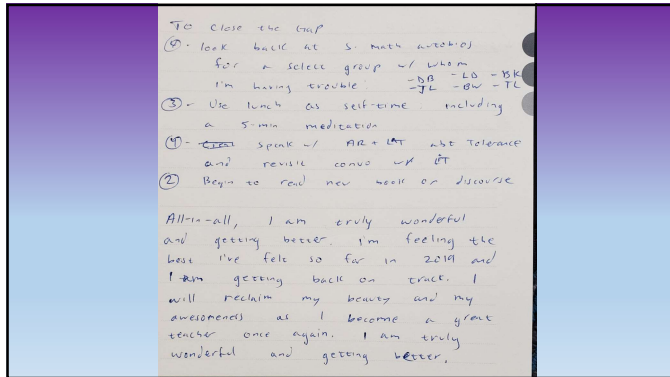 To close the Gap
④ - look back at S. math autobios
for a select group w/ whom
I'm having trouble. - DB - LD - BK
- JL - BW - TL
③ - Use lunch as self-time. Including
a 5-min meditation
④ - speak w/ AR + LAT abt Tolerance
and revisit convo w/ LT
② Begin to read new book on discourse
All-in-all, I am truly wonderful
and getting better. I'm feeling the
best I've felt so far in 2019 and
I am getting back on track. I
will reclaim my beauty and my
awesomeness as I become a great
teacher once again. I am truly
wonderful and getting better.